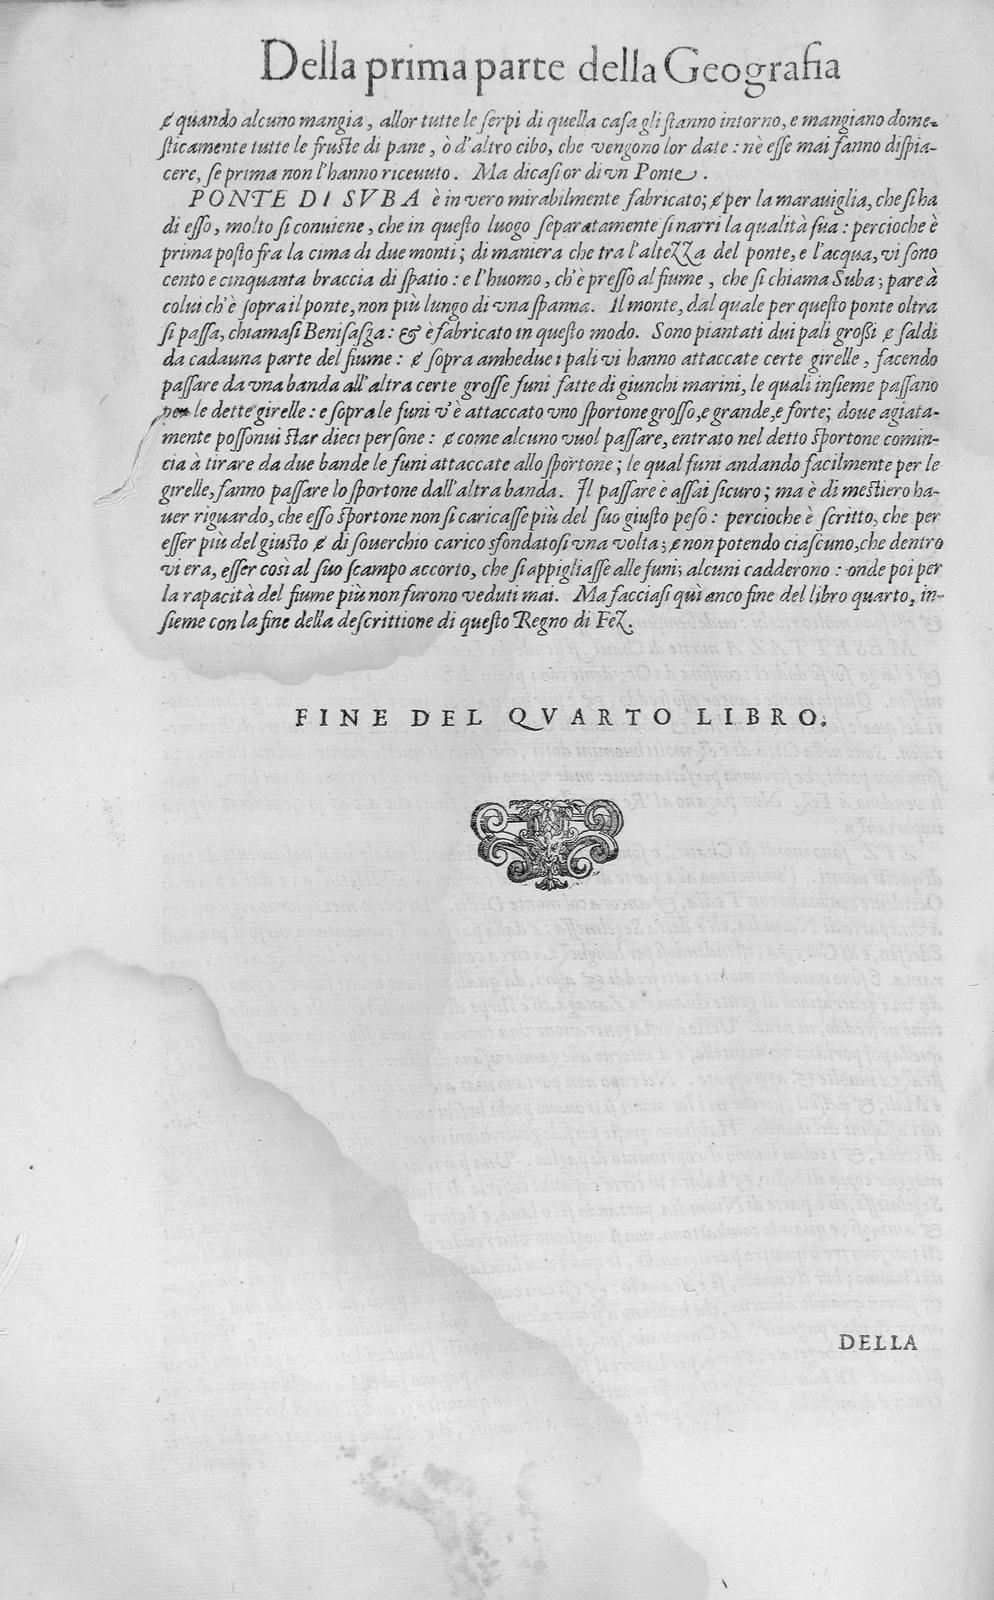 Della prima parte della Geografia
& quando alcuno mangia, allor tutte le serpi di quella casa gli stanno intorno, e mangiano dome-
sticamente tutte le fruste di pane, ò d'altro cibo, che vengono lor date: nè esse mai fanno dispia-
cere, se prima non l'hanno riceuuto. Ma dicasi or di vn Ponte.
PONTE DI SVBA è in vero mirabilmente fabricato; & per la marauiglia, che si ha
di esso, molto si conuiene, che in questo luogo separatamente si narri la qualità sua: percioche è
prima posto fra la cima di due monti; di maniera che tra l'altezza del ponte, e l'acqua, vi sono
cento e cinquanta braccia di spatio: e l'huomo, ch'è presso al fiume, che si chiama Suba; pare à
colui ch'è sopra il ponte, non più lungo di vna spanna. Il monte, dal quale per questo ponte oltra
si passa, chiamasi Benisasga: & è fabricato in questo modo. Sono piantati dui pali grossi & saldi
da cadauna parte del fiume: & sopra ambedue i pali vi hanno attaccate certe girelle, facendo
passare da vna banda all'altra certe grosse funi fatte di giunchi marini, le quali insieme passano
per le dette girelle: e sopra le funi v'è attaccato vno sportone grosso, e grande, e forte; doue agiata-
mente possonui star dieci persone: & come alcuno vuol passare, entrato nel detto sportone comin-
cia à tirare da due bande le funi attaccate allo sportone; le qual funi andando facilmente per le
girelle, fanno passare lo sportone dall'altra banda. Il passare è assai sicuro; ma è di mestiero ha-
uer riguardo, che esso sportone non si caricasse più del suo giusto peso: percioche è scritto, che per
esser più del giusto & di souerchio carico sfondatosi vna volta; & non potendo ciascuno, che dentro
vi era, esser così al suo scampo accorto, che si appigliasse alle funi; alcuni cadderono: onde poi per
la rapacità del fiume più non furono veduti mai. Ma facciasi quì anco fine del libro quarto, in-
sieme con la fine della descrittione di questo Regno di Fez.
FINE DEL QVARTO LIBRO.
DELLA